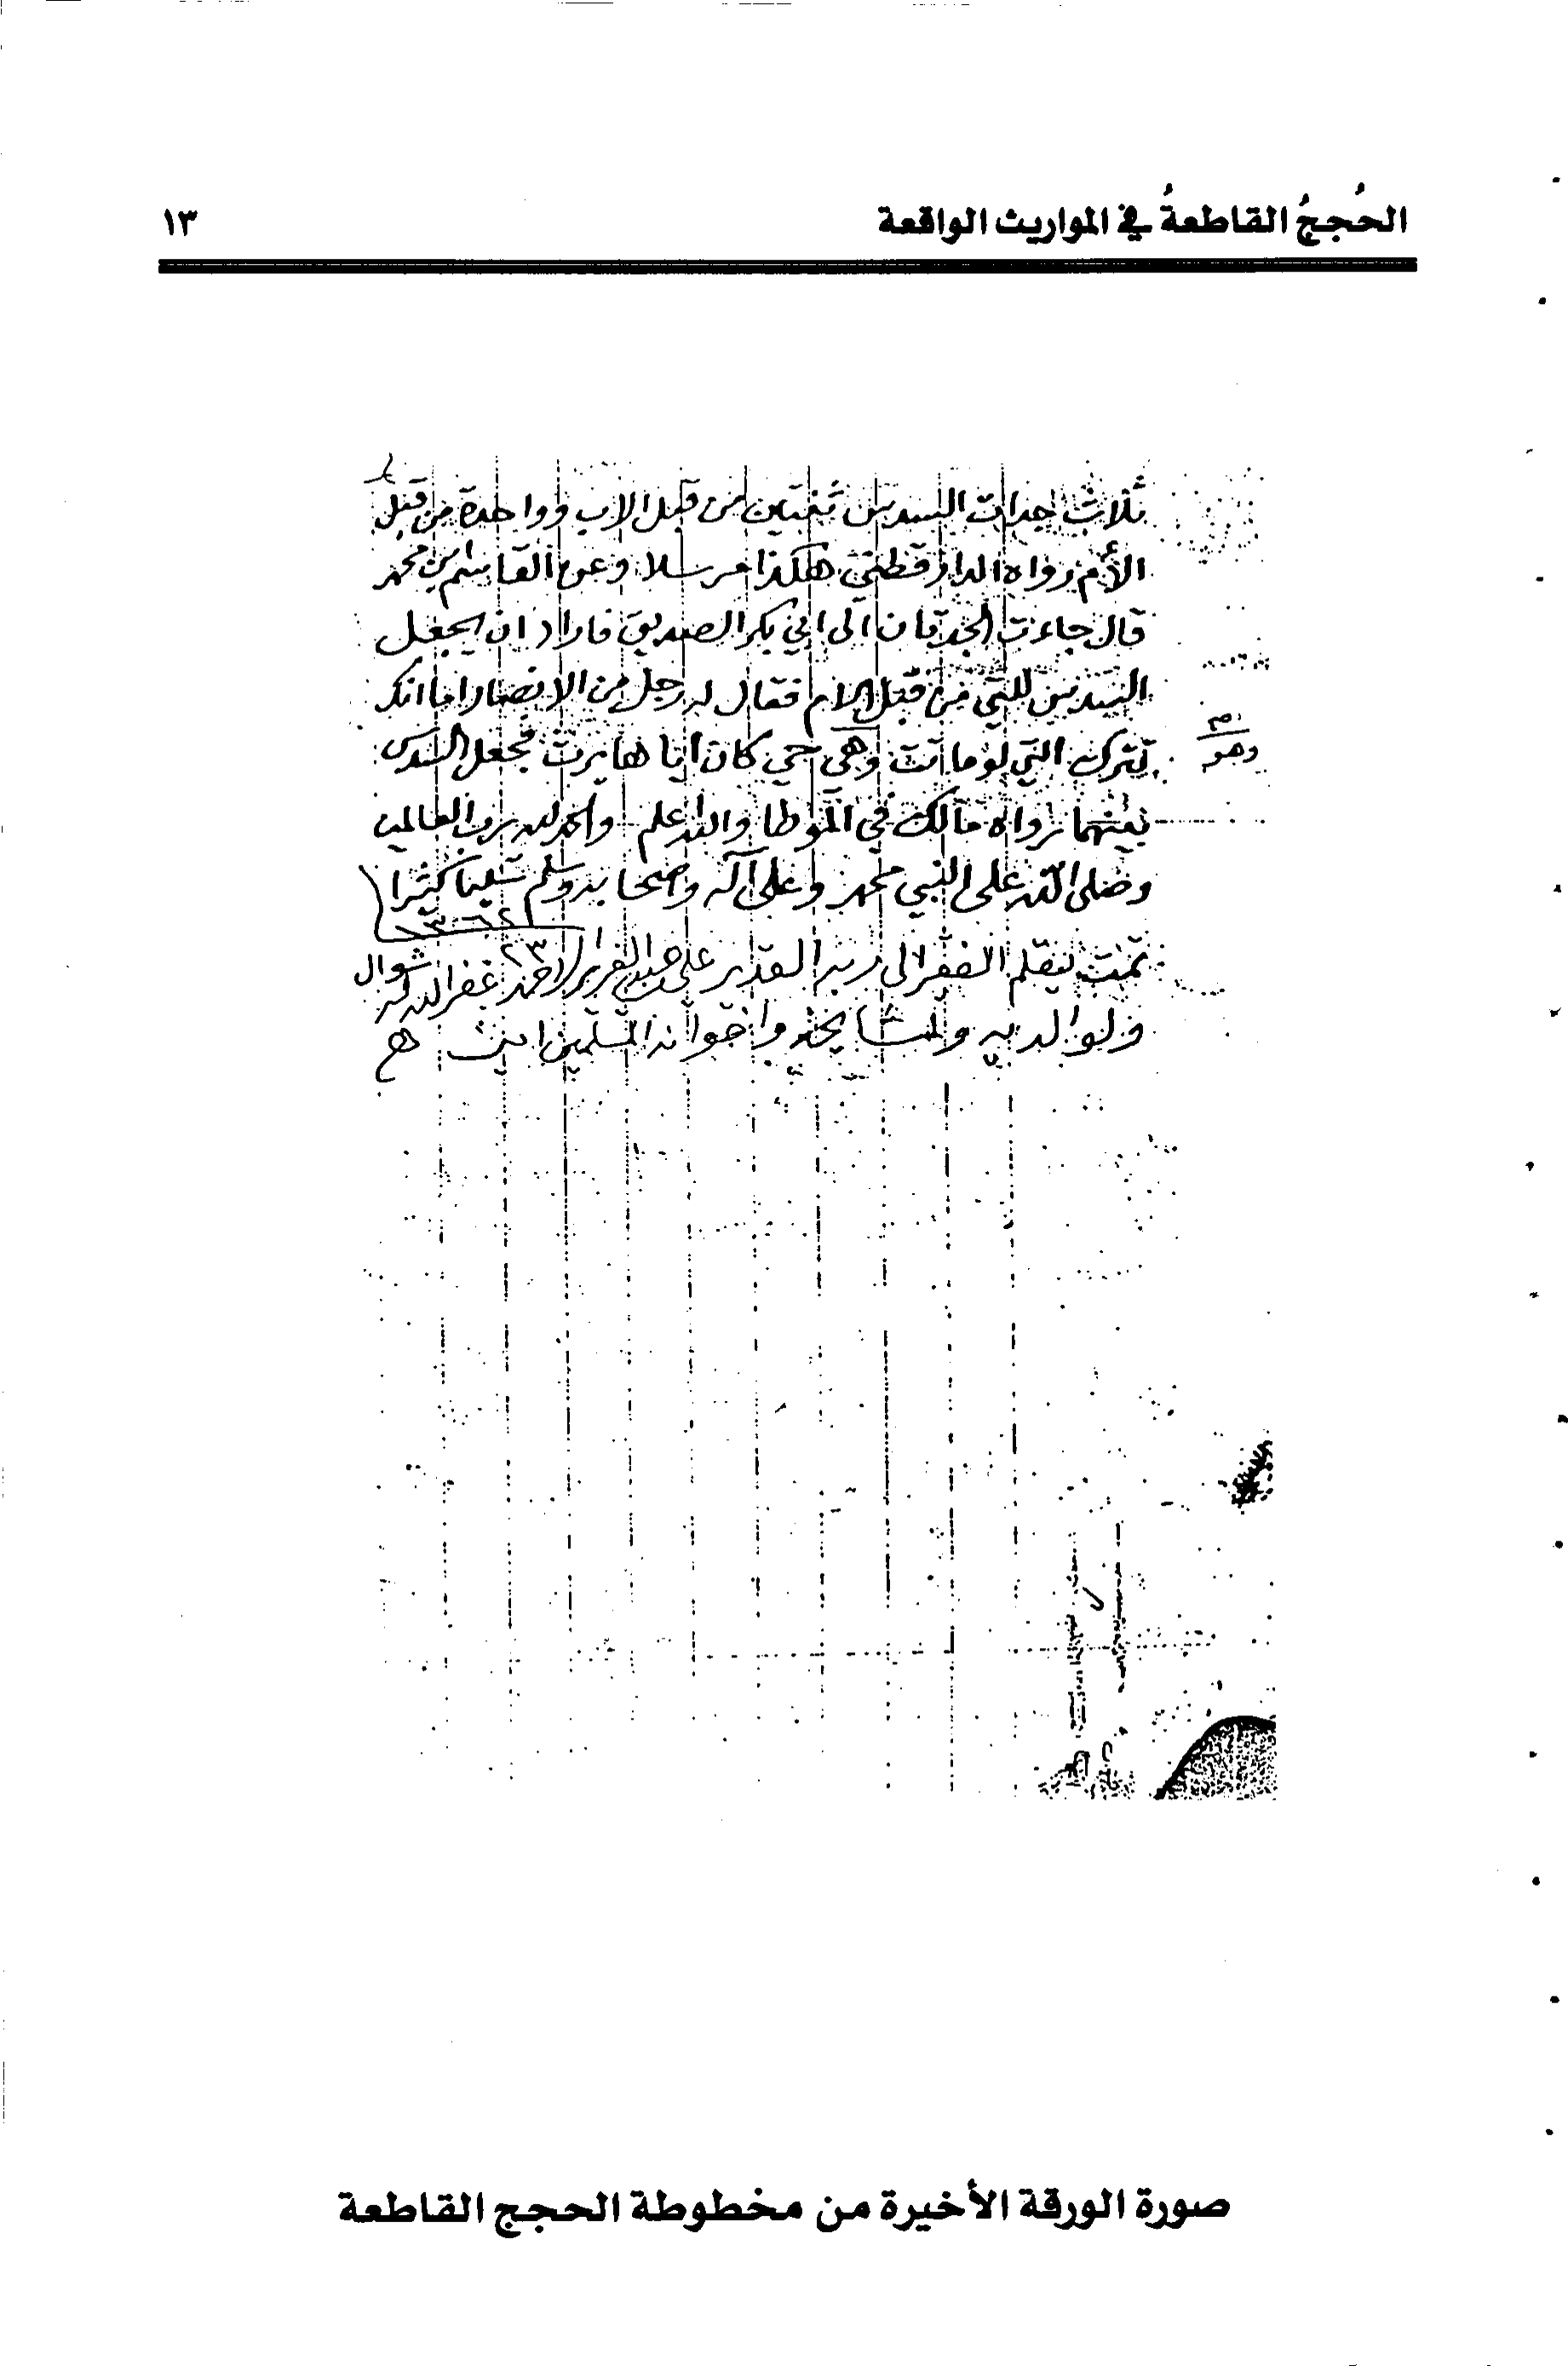 الحُججُ القاطعةُ في المواريث الواقعة
١٣
ثلاث جدات السدس ثنتين من قبل الاب وواحدة من قبل
الأم رواه الدارقطني هكذا مرسلا وعن القاسم بن محمد
قال جاءت الجدتان الى ابي بكر الصديق فاراد ان يجعل
السدس للتي من قبل الام فقال له رجل من الانصار اما انك
تترك التي لو ماتت وهي حي كان اياها يرث فجعل السدس
وهو
بينهما رواه مالك في الموطا والله اعلم والحمد لله رب العالمين
وصلى الله على النبي محمد وعلى آله واصحابه وسلم تسليما كثيرا
تمت بقلم الفقير الى ربه القدير علي احمد غفر الله له
٢٣ شوال
ولوالديه ولمشايخه واخوانه المسلمين امين
صورة الورقة الأخيرة من مخطوطة الحجج القاطعة